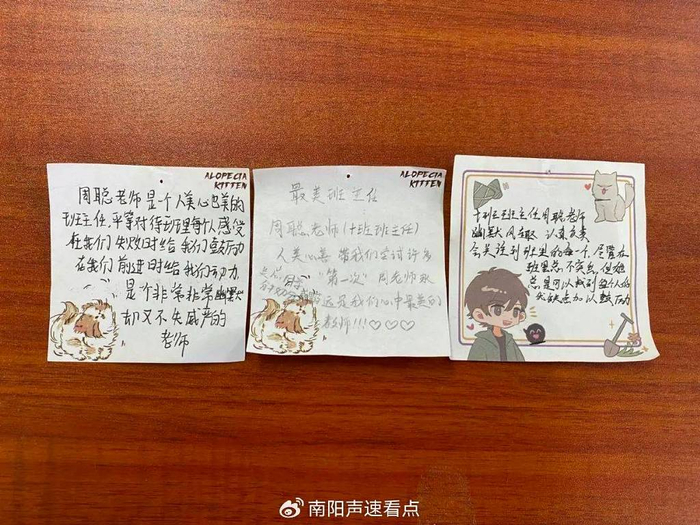 ALOPECIA
KITTEN
周聪老师是个人美心也美的
班主任,平常对待班里每个人感受
在我们失败时给我们鼓励
在我们前进时给我们动力
是个非常非常幽默
却又不失威严的
老师
ALOPECIA
KITTEN
最美班主任
周聪老师(十班班主任)
人美心善 带我们尝试许多
"第一次" 周老师
远是我们心中最美的
教师!!!♡♡♡
十班班主任周聪老师
幽默风趣 认真负责
会关注到班里的每一个
南阳声速看点